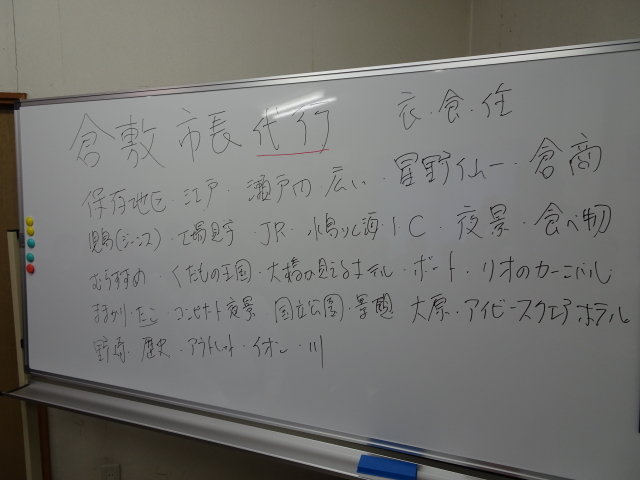 倉敷市長代行 衣・食・住
保存地区・江戸・瀬戸内 広い・星野仙一・倉商
児島(ジーンズ)・工場見学・JR・水島リロ酒・I C・夜景・食べ物
むらすずめ・くだもの王国・大橋が見えるホテル・ボート・リオのカーニバル
ままかり・たこ コンビナート夜景 国立公園・景観 大原・アイビースクエアホテル
野崎・歴史・アウトレット・イオン・川